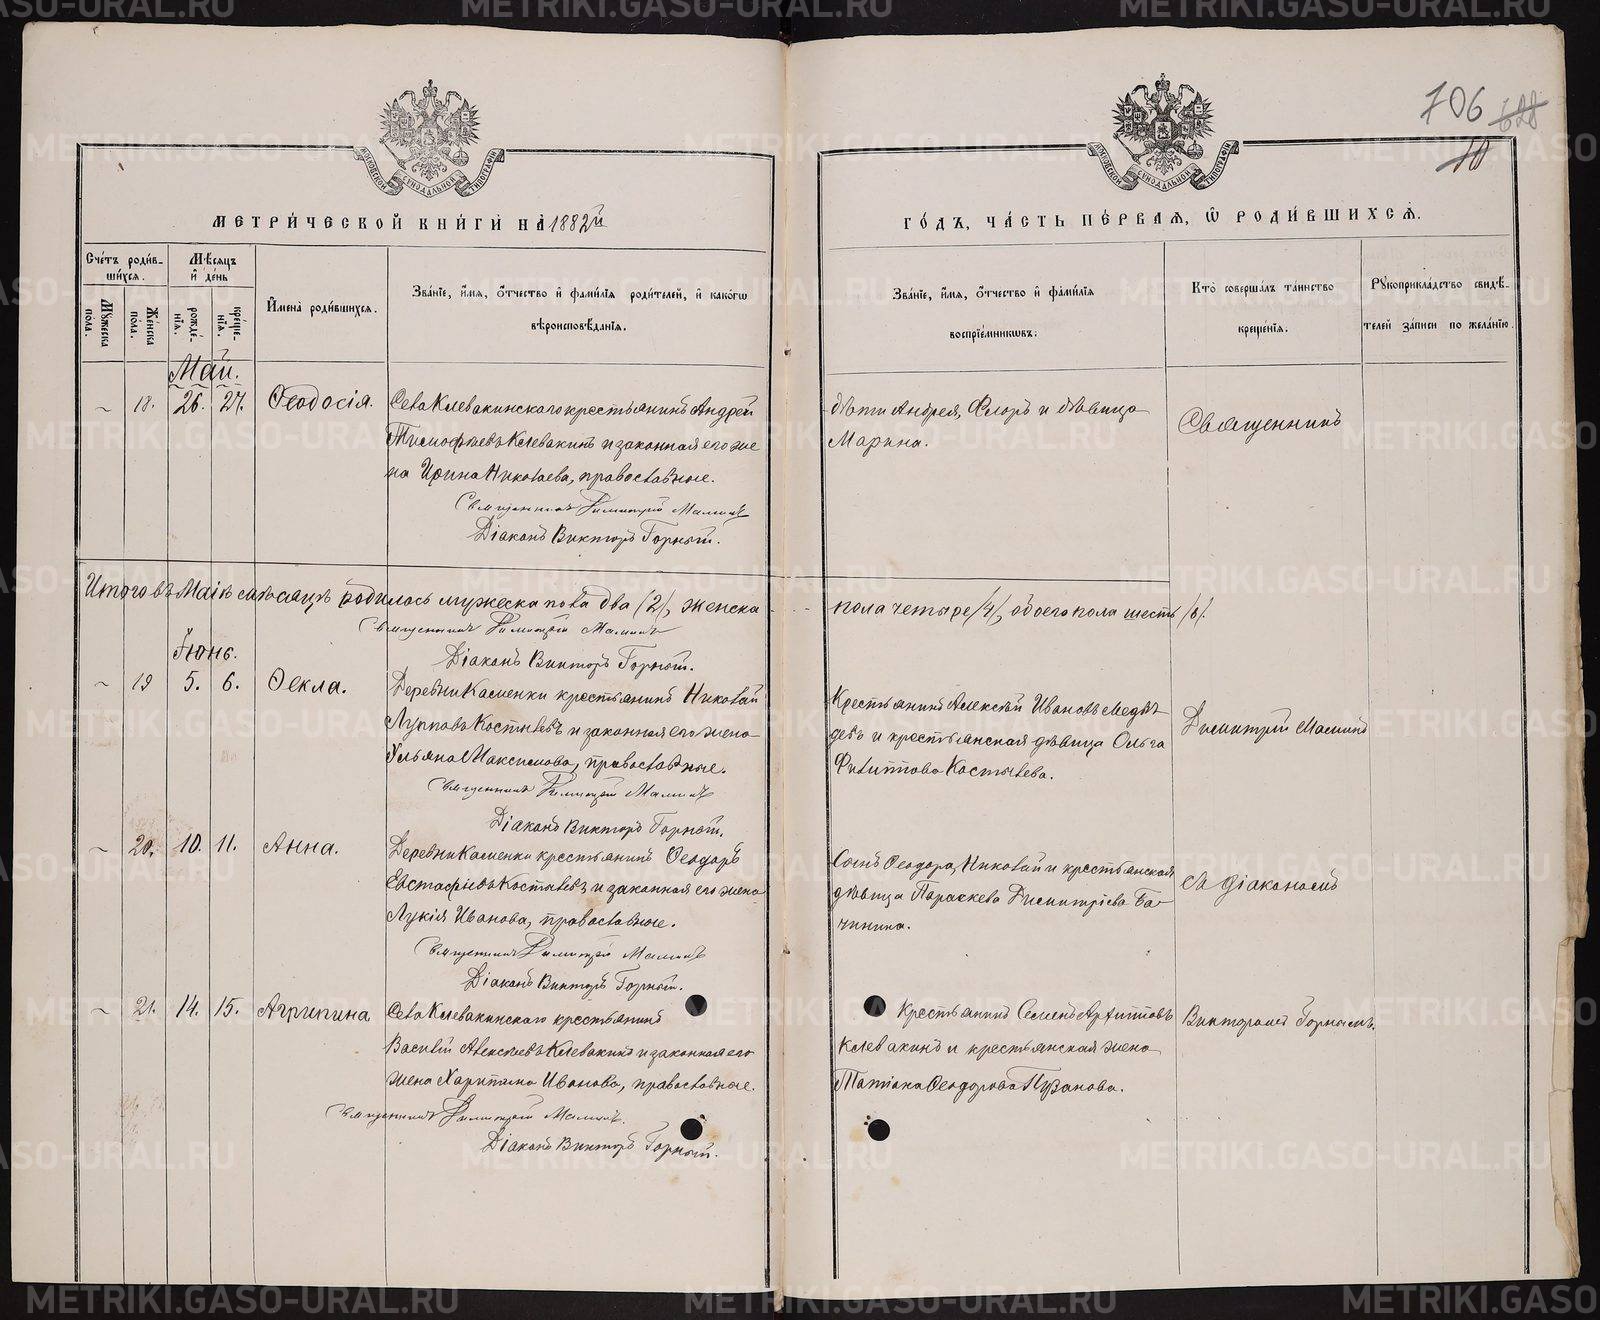 МЕТРИ́ЧЕСКОЙ КНИ́ГИ НА̀ 1882й
ГО́ДЪ, ЧА́СТЬ ПЕ́РВАѦ, Ѿ РОДИ́ВШИХСѦ.
706
10
Сче́тъ роди́в-
ши́хсѧ.
Мꙋ́жеска пола.
Же́нска пола.
Мѣ́сѧцъ
и҆ де́нь
рожде́-
нїѧ.
креще́-
нїѧ.
И҆мена̀ роди́вшихсѧ.
Зва́нїе, и҆́мѧ, ѻ҆́тчество и҆ фами́лїѧ роди́телей, и҆ како́гѡ
вѣроисповѣ́данїѧ.
Зва́нїе, и҆́мѧ, ѻ҆́тчество и҆ фами́лїѧ
воспрїе́мникѡвъ.
Кто̀ соверша́лъ та́инство
креще́нїѧ.
Рꙋкоприкла́дство свидѣ́-
телей за́писи по жела́нїю.
Май.
18. 26. 27. Ѳеодосія. Села Клевакинскаго крестьянинъ Андрей
Тимофѣевъ Клевакинъ и законная его же
на Ирина Николаева, православные.
Священникъ Димитрій
Діаконъ Викторъ Горныхъ.
дѣти Андрея, Флоръ и дѣвица
Марина.
Священникъ
Итого въ Маіѣ мѣсяцѣ родилось мужеска пола два /2/, женска
пола четыре /4/, обоего пола шесть /6/.
Священникъ Димитрій
Діаконъ Викторъ Горныхъ.
Іюнь.
19 5. 6. Ѳекла. Деревни Каменки крестьянинъ Николай
Костылевъ и законная его жена
Ульяна Максимова, православные.
Священникъ Димитрій
Діаконъ Викторъ Горныхъ.
Крестьянинъ Алексѣй Ивановъ Медвѣ
девъ и крестьянская дѣвица Ольга
Филиппова Костылева.
Димитрій
20. 10. 11. Анна. Деревни Каменки крестьянинъ Ѳеодоръ
Евстафіевъ Костылевъ и законная его жена
Лукія Иванова, православные.
Священникъ Димитрій
Діаконъ Викторъ Горныхъ.
Сынъ Ѳеодора, Николай и крестьянская
дѣвица Параскева Димитріева Ба-
чинина.
съ діакономъ
21. 14. 15. Агрипина Села Клевакинскаго крестьянинъ
Василій Алексѣевъ Клевакинъ и законная его
жена Харитина Иванова, православные.
Священникъ Димитрій
Діаконъ Викторъ Горныхъ.
Крестьянинъ Семенъ Архиповъ
Клевакинъ и крестьянская жена
Татіана Ѳеодорова Пузанова.
Викторомъ Горныхъ.
METRIKI.GASO-URAL.RU